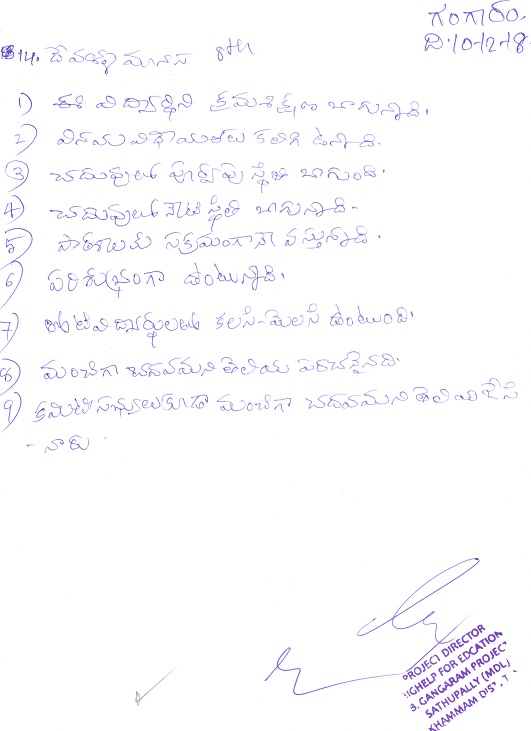 గంగారం.
ది.10-12-18.
14. దేవళ్ళ మానస 8th
1) ఈ విద్యార్థిని క్రమశిక్షణ బాగున్నాది.
2) వినయ విధేయతలు కలిగి ఉన్నాది.
3) చదువులో పూర్వపు స్థితి బాగుంది.
4) చదువులో నేటి స్థితి బాగున్నాది.
5) పాఠశాలకు సక్రమంగానే వస్తున్నాది.
6) పరిశుభ్రంగా ఉంటున్నాది.
7) తోటి విద్యార్థులతో కలసి-మెలసి ఉంటుంది.
8) మంచిగా చదవమని తెలియ పరచనైనది.
9) కమిటి సభ్యులుకూడా మంచిగా చదవమని తెలియజేసి
- నారు.
PROJECT DIRECTOR
HELP FOR EDCATION
B. GANGARAM PROJECT
SATHUPALLY (MDL)
KHAMMAM DIST, T